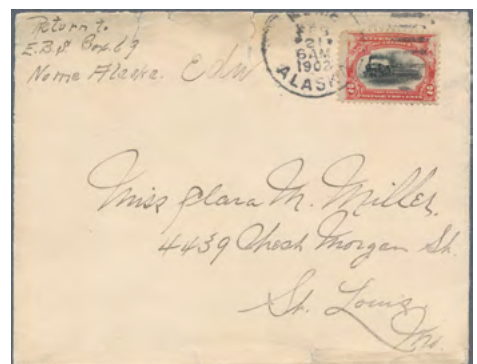 Return to
E.B.S Box 69
Nome Alaska. Edw
FEB
21
6AM
1902
ALASKA
2 2
Miss Clara M. Miller.
4439 Chest Morgan St.
St. Louis
Mo.